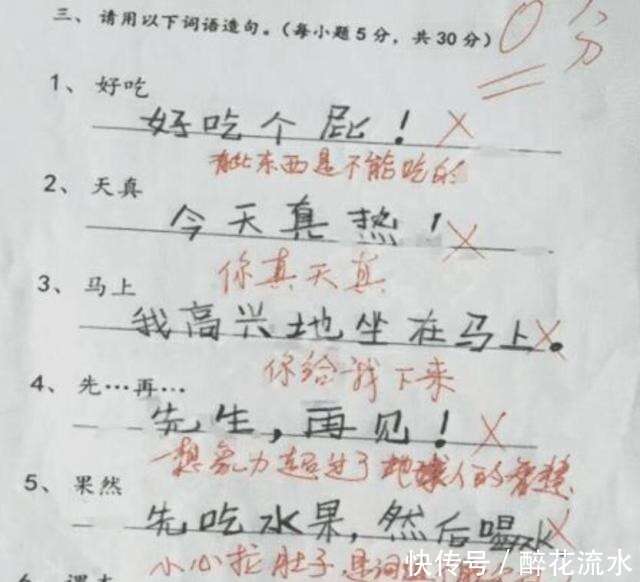 三、请用以下词语造句。(每小题5分，共30分)
0分
1、好吃
好吃个屁！
有些东西是不能吃的
2、天真
今天真热！
你真天真
3、马上
我高兴地坐在马上。
你给我下来
4、先…再…
先生，再见！
想象力超过了地球人的智慧
5、果然
先吃水果，然后喝水
小心拉肚子，是词
快传号／醉花流水
6、课本